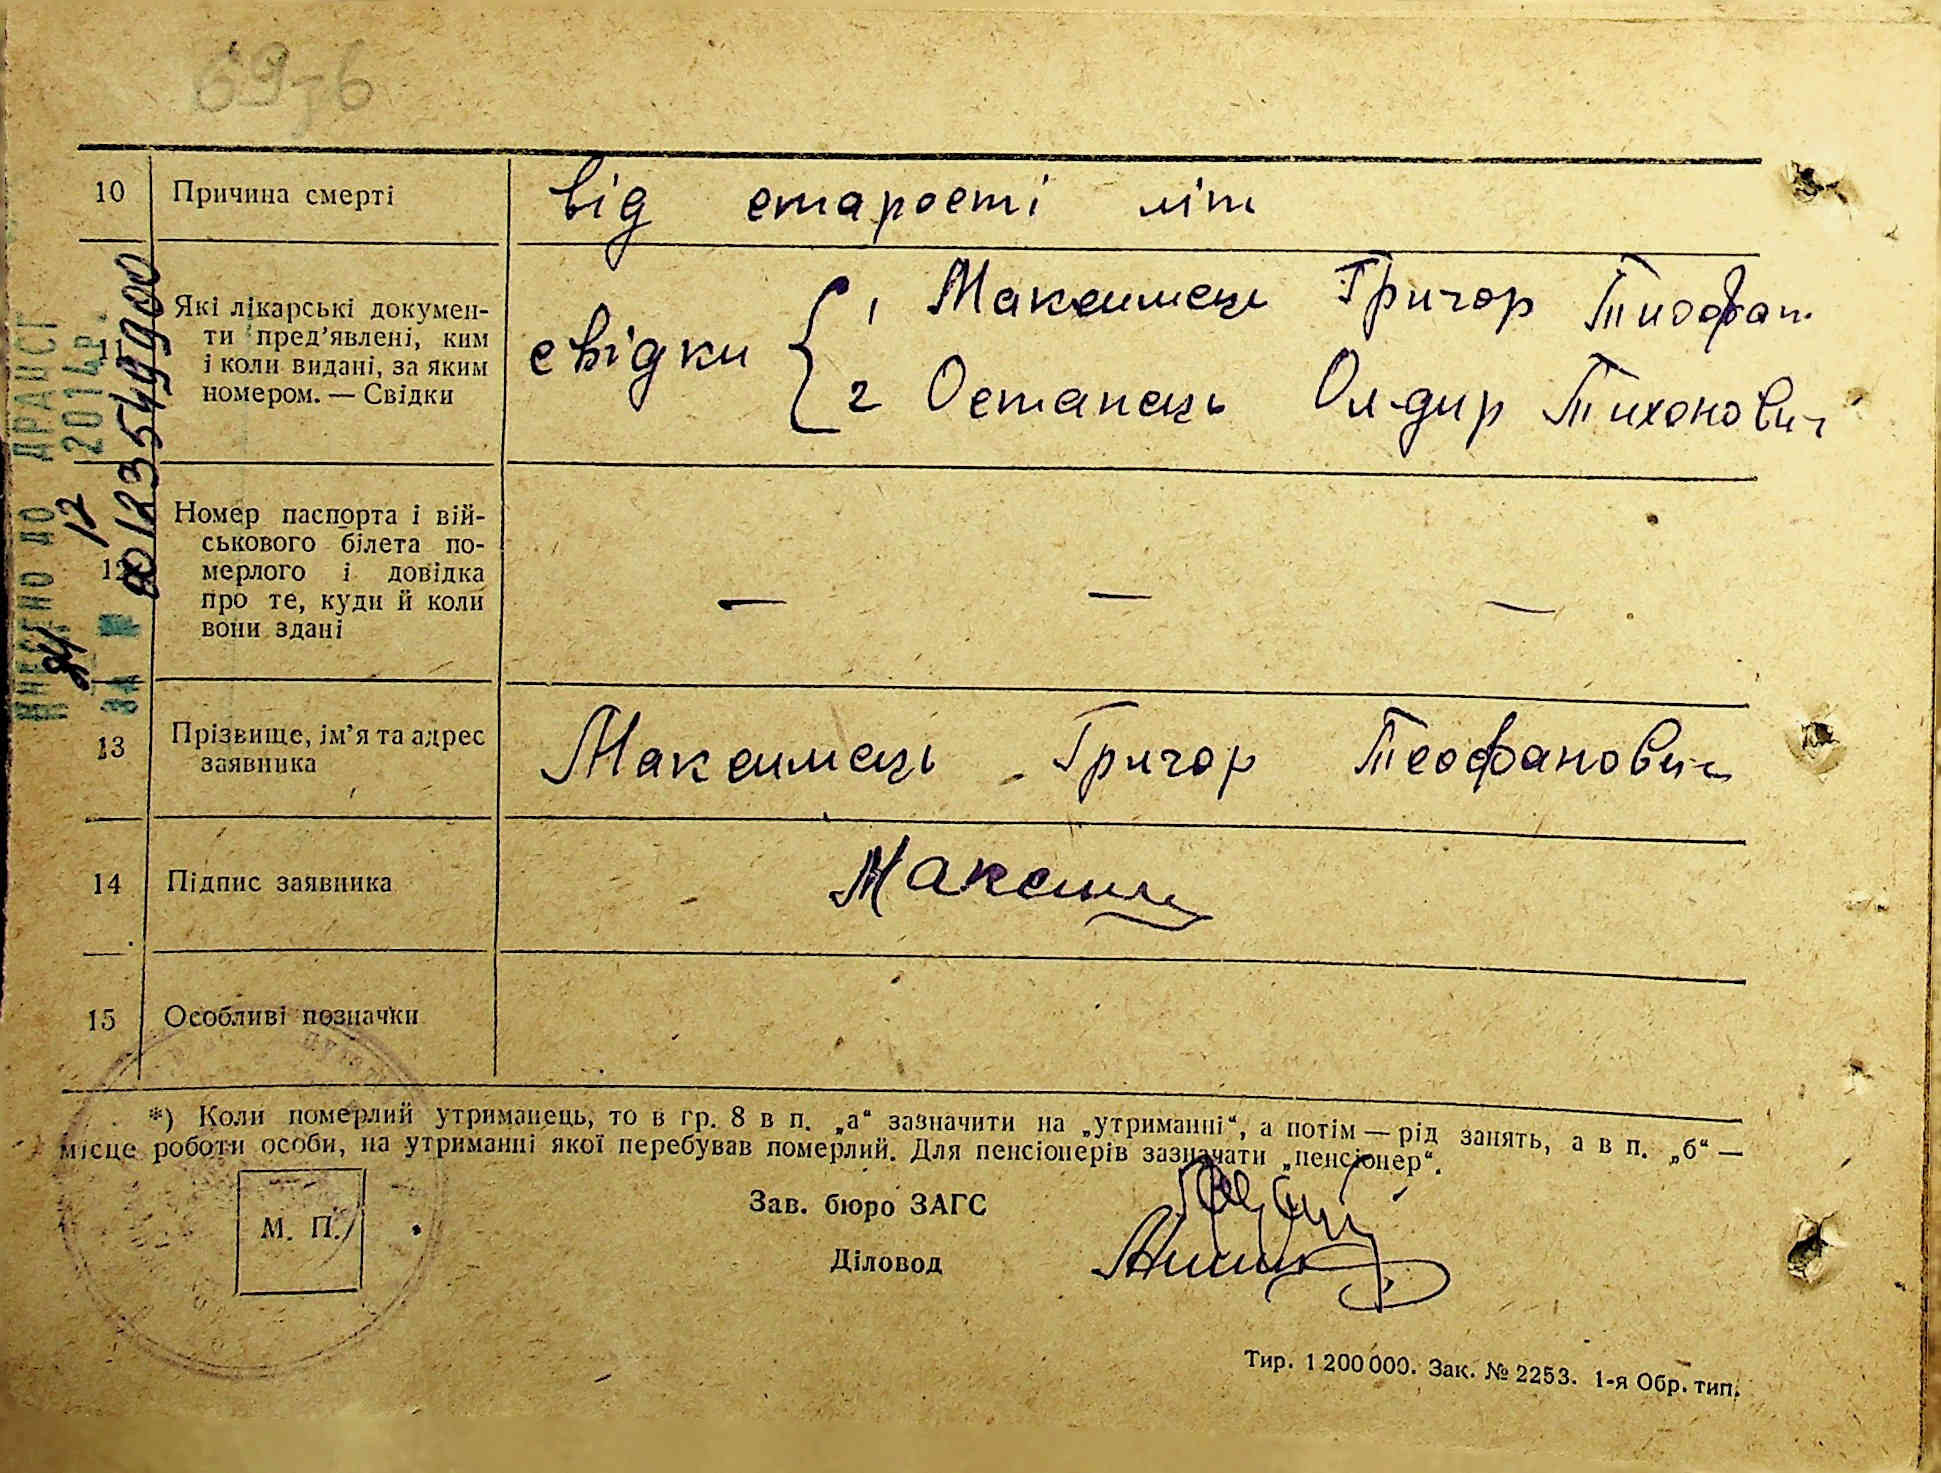 69-б
10 Причина смерті від старості літ
Які лікарські докумен-
ти пред’явлені, ким
і коли видані, за яким
номером. — Свідки
свідки { 1 Максимець Григор Тиофан.
2 Останець Ол-дир Тихонович
12 Номер паспорта і вій-
ськового білета по-
мерлого і довідка
про те, куди й коли
вони здані
— — —
13 Прізвище, ім’я та адрес
заявника
Максимець Григор Теофанович
14 Підпис заявника Максим
15 Особливі позначки
*) Коли померлий утриманець, то в гр. 8 в п. „а“ зазначити на „утриманні“, а потім — рід занять, а в п. „б“ —
місце роботи особи, на утриманні якої перебував померлий. Для пенсіонерів зазначати „пенсіонер“.
М. П.
Зав. бюро ЗАГС
Діловод
Тир. 1 200 000. Зак. № 2253. 1-я Обр. тип.
ВНЕСЕНО ДО ДРАЦСГ
24 12 2014р.
ЗА № 00123549900